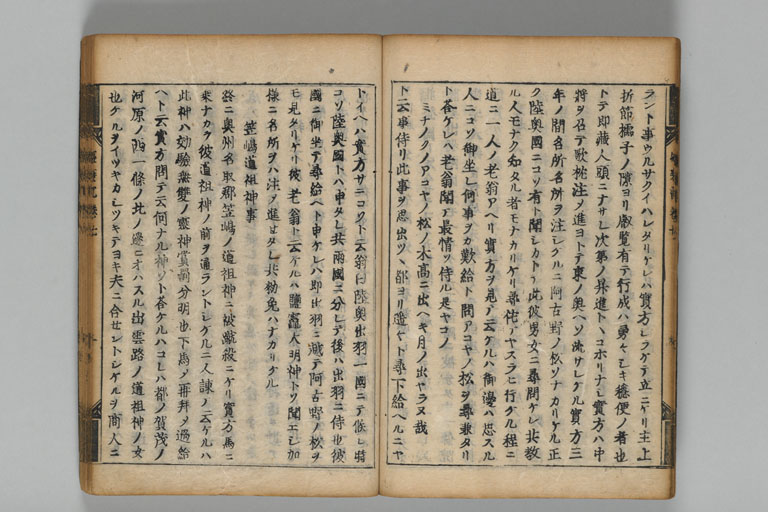 ラント事ウルサクイハレタリケレハ實方シラケテ立ニケリ主上
折節ノ隙ヨリ叡覧有テ行成ハ勇々シキ穏便ノ者也
トテ即藏人頭ニナサレ次第ノ昇進トヽコホリナシ實方ハ中
將ヲ召テ歌枕注メ進ヨトテ東ノ奥ヘソ流サレケル實方三
年ノ間名所名所ヲ注シケルニ阿古野ノ松ソナカリケル正
ク陸奥國ニコソ有ト聞シカトテ此彼男女ニ尋問ケレ共教
ル人モナク知タル者モナカリケリ尋テヤスラヒ行ケル程ニ
道ニ一人ノ老翁アヘリ實方ヲ見テ云ケルハ御邊ハ思スル
人ニコソ御坐レ何事ヲカ歎給ト問アコヤノ松ヲ尋兼タリ
ト答ケレハ老翁聞テ最情ソ侍ル是ヤコノ
ミチノクノアコヤノ松ノ木髙ニ出ヘキ月ノ出ヤラヌ哉
ト云事侍リ此事ヲ思出ツヽ都ヨリ遥々ト尋下給ヘルニヤ
トイヘハ實方サニコソト云翁曰陸奥出羽一國ニテ候シ時
コソ陸奥國トハ申タレ共兩國ニ分レテ後ハ出羽ニ侍也彼
國ニ御坐テ尋給ヘト申ケレハ即出羽ニ越テ阿古野ノ松ヲ
モ見タリケリ彼老翁ト云ケルハ鹽竈大明神トソ聞エシ加
様ニ名所ヲハ注メ進セタレ共勅免ハナカリケル
笠嶋道祖神事
終ニ奥州名取郡笠嶋ノ道祖神ニ被蹴殺ニケリ實方馬ニ
乗ナカラ彼道祖神ノ前ヲ通ラントシケルニ人諫メ云ケルハ
此神ハ効驗無雙ノ靈神賞罰分明也下馬メ再拜メ過給
ヘト云實方問テ云何ナル神ソト答ケルハコレハ都ノ賀茂ノ
河原ノ西一條ノ北ノ邊ニオハスル出雲路ノ道祖神ノ女
也ケルヲイツキカシツキテヨキ夫ニ合セントシケルヲ商人ニ